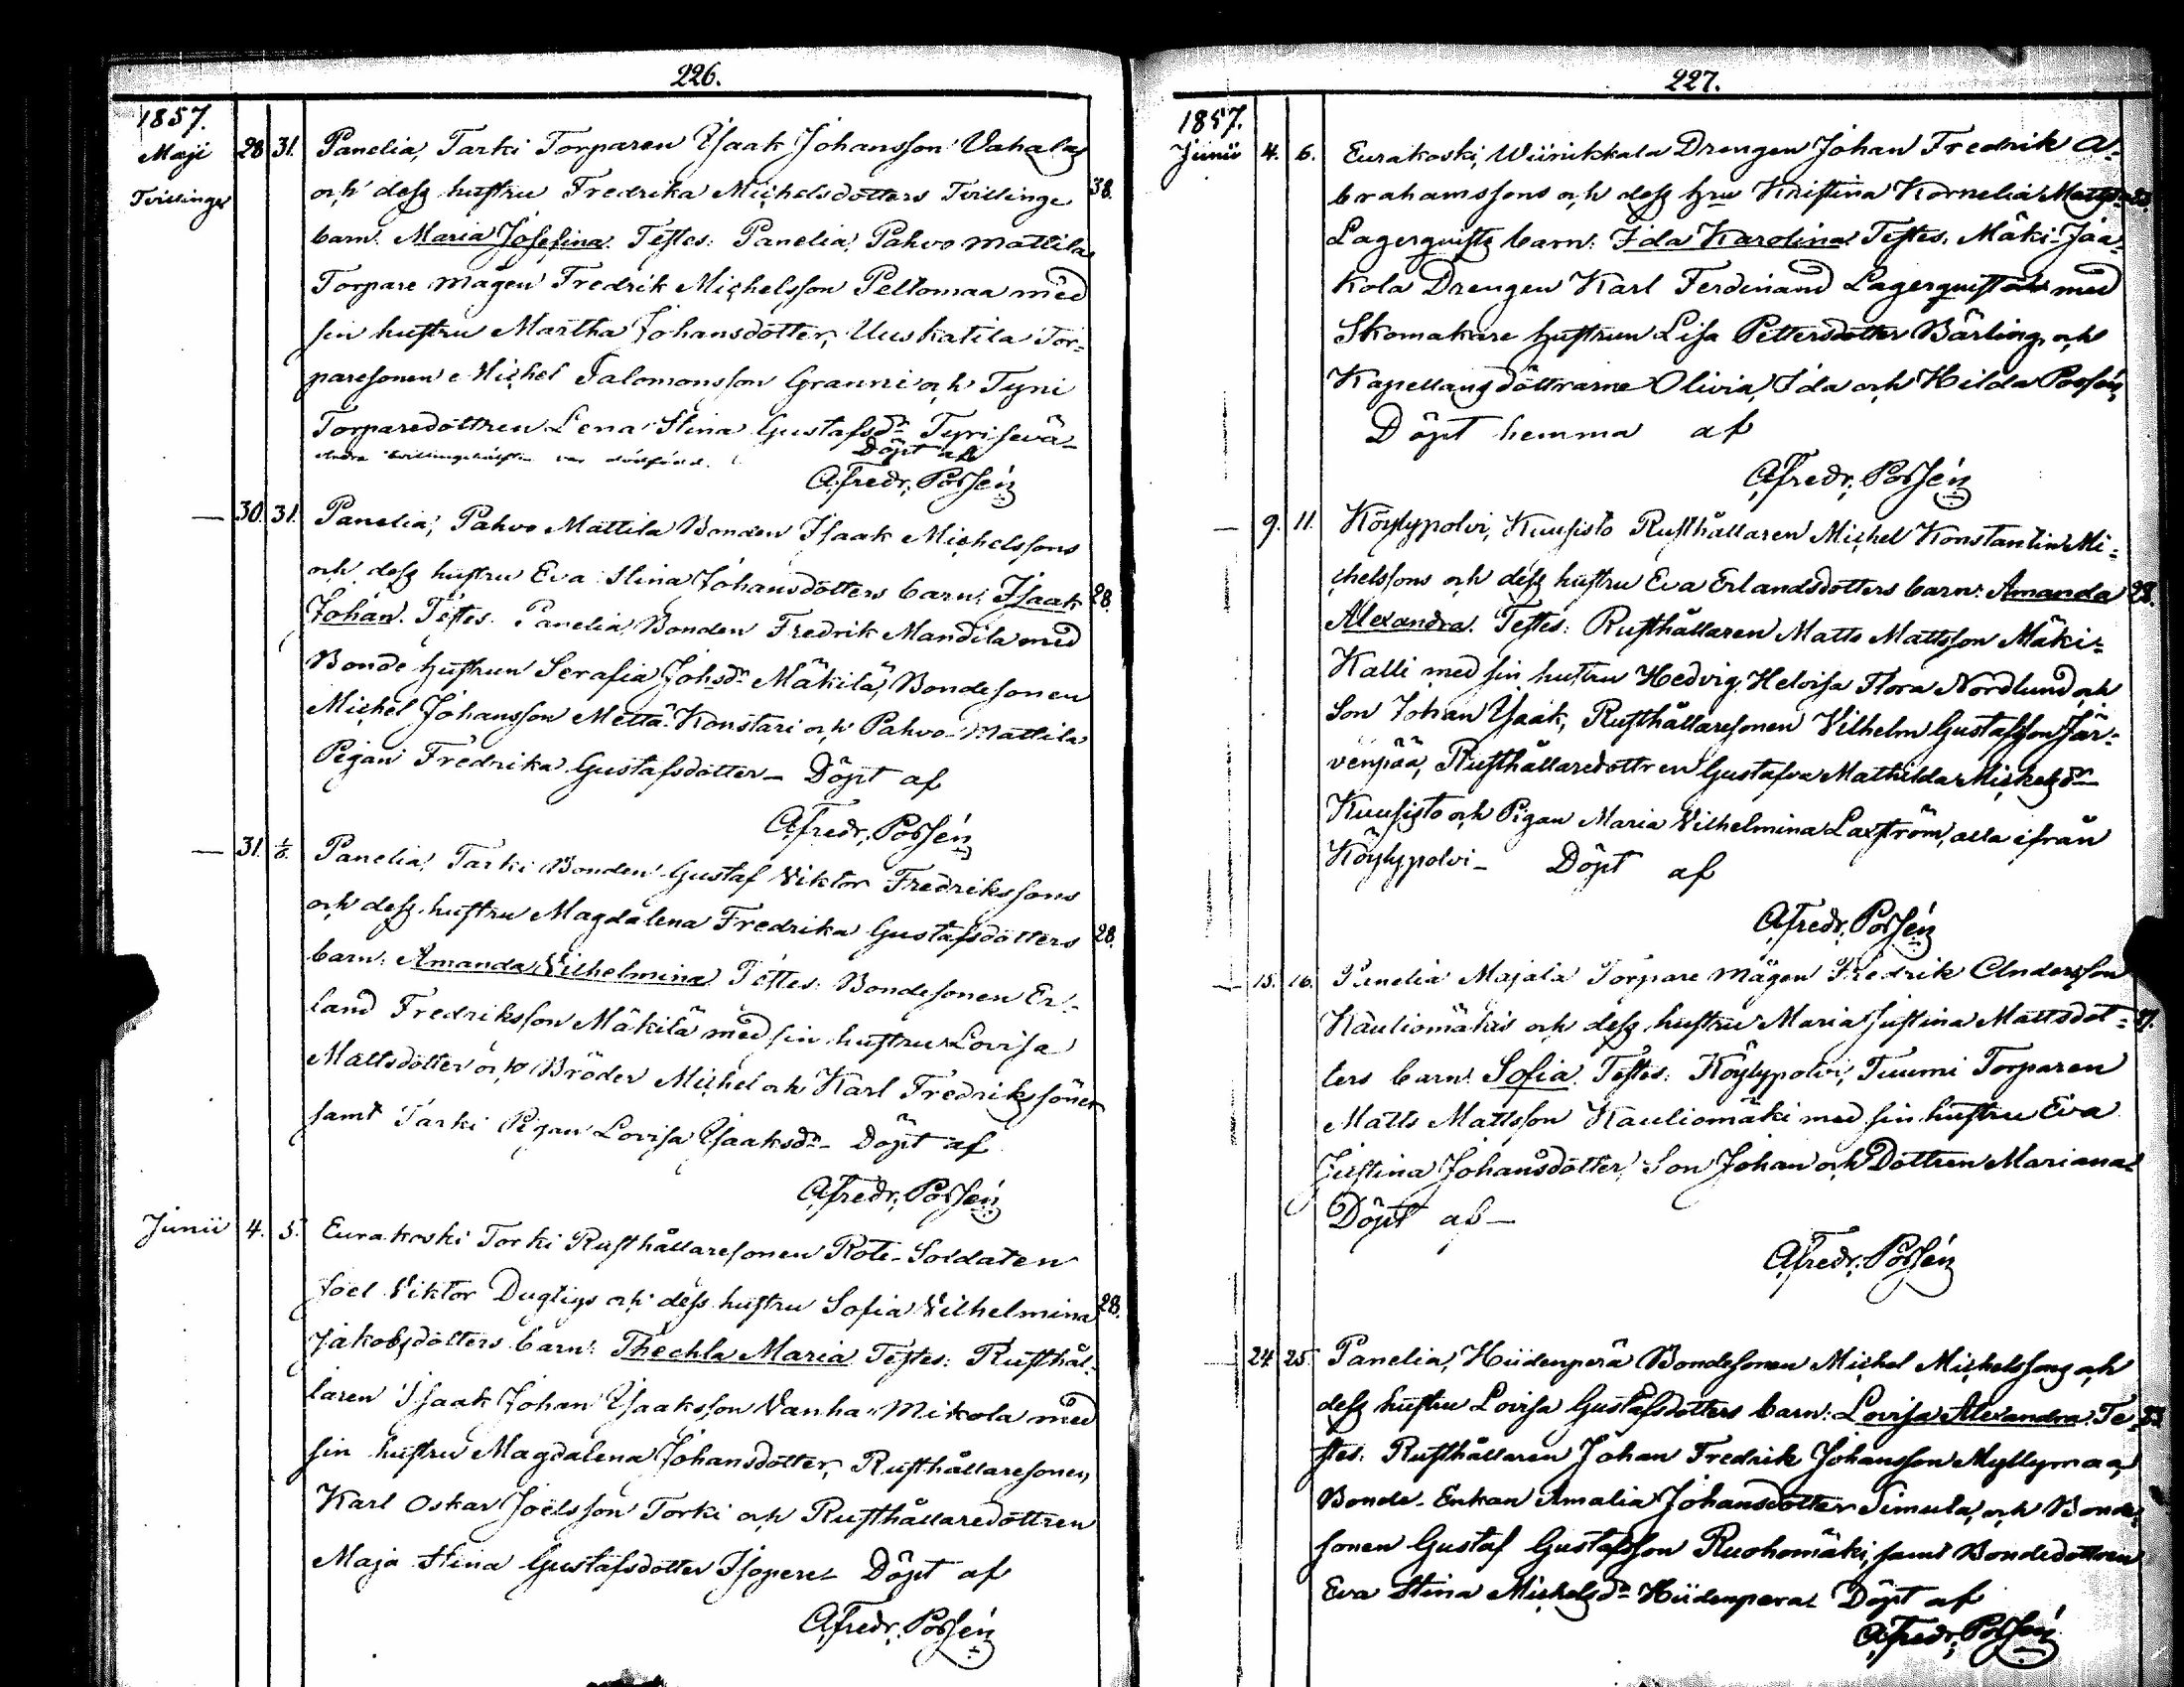 226.
1857.
Maji 28 31. Panelia, Tarki Torparen Isaak Johansson Vahalas
Tvillingar och dess hustru Fredrika Michelsdotters Tvillinge 38.
barn: Maria Josefina. Testes: Panelia, Pahvo Mattila
Torpare mågen Fredrik Michelsson Peltomaa med
sin hustru Martha Johansdotter, Uuskatila Tor=
paresonen Michel Salomonsson Granni och Tyni
Torparedottren Lena Stina Gustafsdr Tyrisevä –
Andra tvillinghälften var dödfödd. Döpt af
A. Fredr. Possén
— 30. 31. Panelia, Pahvo Mattila Bonden Isaak Michelssons
och dess hustru Eva Stina Johansdotters barn: Isaak 28.
Johan. Testes. Panelia Bonden Fredrik Mandila med
Bonde hustrun Serafia Johsdr Mäkilä, Bondesonen
Michel Johansson Mettä-Konstari och Pahvo-Mattila
Pigan Fredrika Gustafsdotter – Döpt af
A. Fredr. Possén
— 31. 1/6. Panelia, Tarki Bonden Gustaf Viktor Fredrikssons
och dess hustru Magdalena Fredrika Gustafsdotters 28.
barn: Amanda Vilhelmina Testes: Bondesonen Er=
land Fredriksson Mäkilä med sin hustru Lovisa
Mattsdotter och Bröder Michel och Karl Fredrikssöner
samt Tarki Pigan Lovisa Isaaksdr – Döpt af
A. Fredr. Possén
Junii 4. 5. Eurakoski Torki Rusthållaresonen Rote-Soldaten
Joel Viktor Dugtigs och dess hustru Sofia Vilhelmina 28.
Jakobsdotters barn: Thechla Maria Testes: Rusthål=
laren Isaak Johan Isaaksson Vanha-Mikola med
sin hustru Magdalena Johansdotter, Rusthållaresonen
Karl Oskar Joelsson Torki och Rusthållaredottren
Maja Stina Gustafsdotter Isopere – Döpt af
A. Fredr. Possén
227.
1857.
Junii 4. 6. Eurakoski, Wiinikkala Drengen Johan Fredrik A=
brahamssons och dess hru Kristina Kornelia
Lagerquists barn: Ida Karolina Testes. Mäki-Jaa=
kola Drengen Karl Ferdinand Lagerquist med
Skomakare hustrun Lisa Pettersdotter Bärling, och
Kapellansdöttrarne Olivia, Ida och Hilda Possén,
Döpt hemma af
A. Fredr. Possén
— 9. 11. Köylypolvi, Kuusisto Rusthållaren Michel Konstantin Mi=
chelssons och dess hustru Eva Erlandsdotters barn: Amanda 28.
Alexandra. Testes: Rusthållaren Matts Mattsson Mäki=
Kalli med sin hustru Hedvig Heloisa Flora Nordlund, och
Son Johan Isaak, Rusthållaresonen Vilhelm Gustafsson Jär=
venpää, Rusthållaredottren Gustafva Mathilda Michelsdr
Kuusisto och Pigan Maria Vilhelmina Laxström, alla ifrån
Köylypolvi – Döpt af
A. Fredr. Possén
— 15. 16. Panelia Majala Torpare mågen Fredrik Andersson
Kauliomäkis och dess hustru Maria Justina Mattsdot=
ters barn: Sofia. Testes: Köylypolvi, Tuumi Torparen
Matts Mattsson Kauliomäki med sin hustru Eva
Justina Johansdotter, Son Johan och Dottren Mariana
Döpt af –
A. Fredr. Possén
24. 25. Panelia, Hiidenperä Bondesonen Michel Michelssons och
dess hustru Lovisa Gustafsdotters barn: Lovisa Alexandra. Te
stes: Rusthållaren Johan Fredrik Johansson Myllymaa,
Bonde-Enkan Amalia Johansdotter Simula, och Bonde=
sonen Gustaf Gustafsson Ruohomäki, samt Bondedottren
Eva Stina Michelsdr Hiidenpera – Döpt af
A. Fredr. Possén